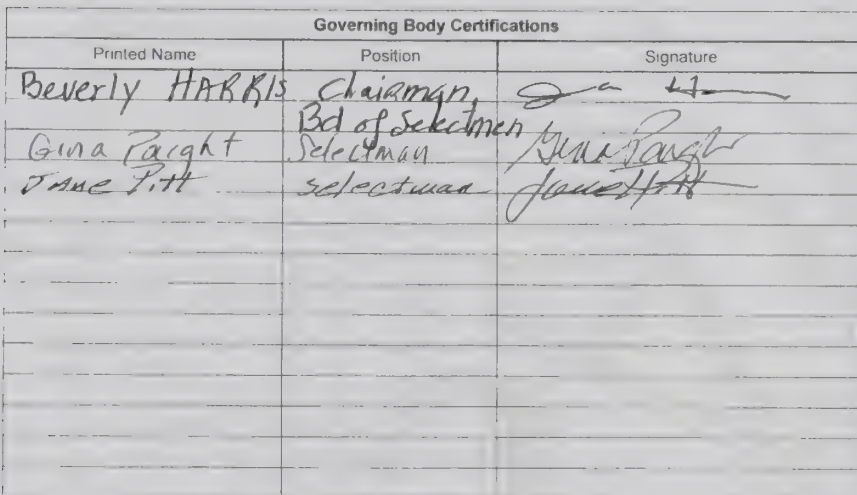 Governing Body Certifications
Printed Name Position Signature
Beverly HARRIS Chairman,
Bd of Selectmen
Gina Paight Selectman Gina Paight
JANE Pitt selectman Jane Pitt